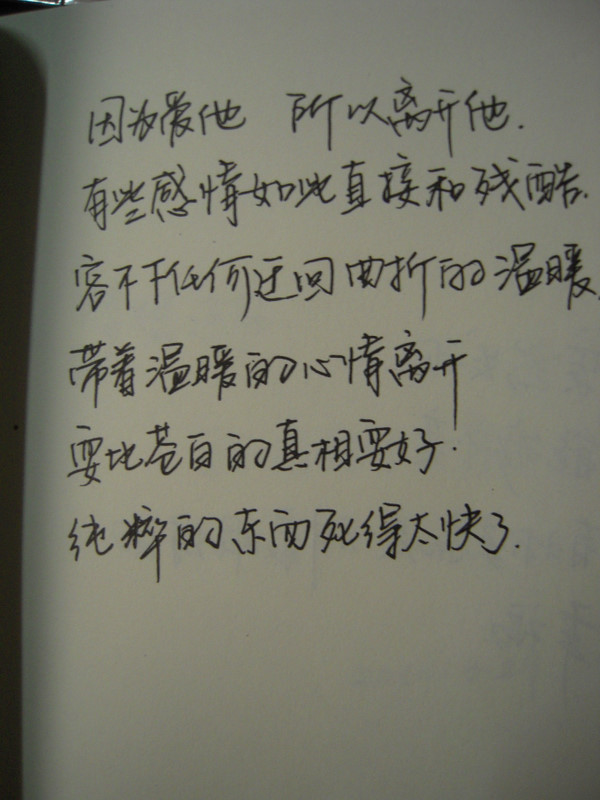 因为爱他 所以离开他.
有些感情如此直接和残酷.
容不下任何迂回曲折的温暖.
带着温暖的心情离开
要比苍白的真相要好.
纯粹的东西死得太快了.